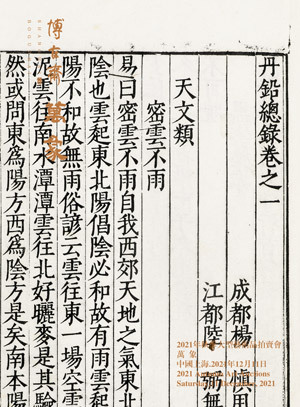 博古齋
萬象
丹鉛總錄卷之一
成都楊
江都陸
天文類
密雲不雨
易曰密雲不雨自我西郊天地之氣東北
陰也雲起東北陽倡陰必和故有雨雲
陽不和故無雨俗諺云雲往東一場空雲
泥雲往南水潭潭雲往北好曬麥是其驗
然或問東為陽方西為陰方是矣南本陽
2021年
拍賣會
萬 象
中國上海.2021年12月11日
2021